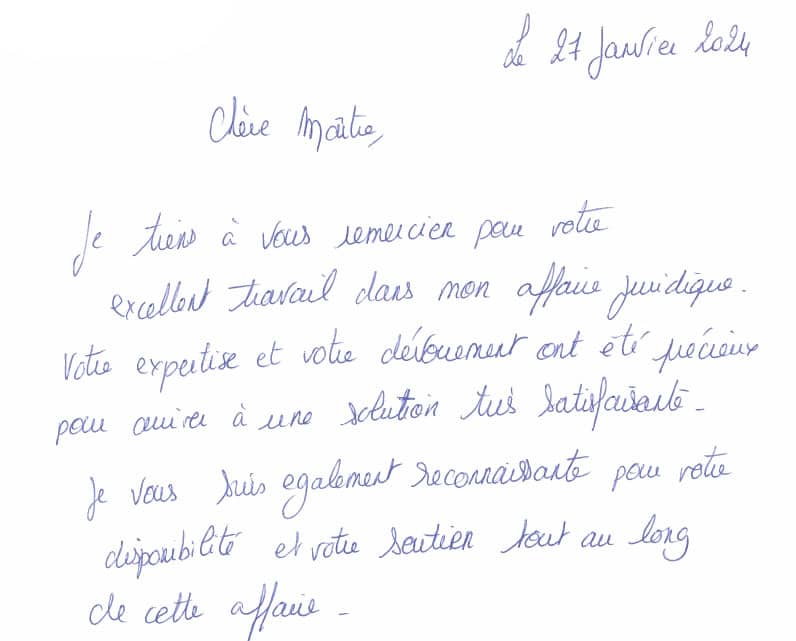 Le 27 Janvier 2024
Chère Maître,
Je tiens à vous remercier pour votre
excellent travail dans mon affaire juridique.
Votre expertise et votre dévouement ont été précieux
pour arriver à une solution très satisfaisante.
Je vous suis egalement reconnaissante pour votre
disponibilité et votre soutien tout au long
de cette affaire.